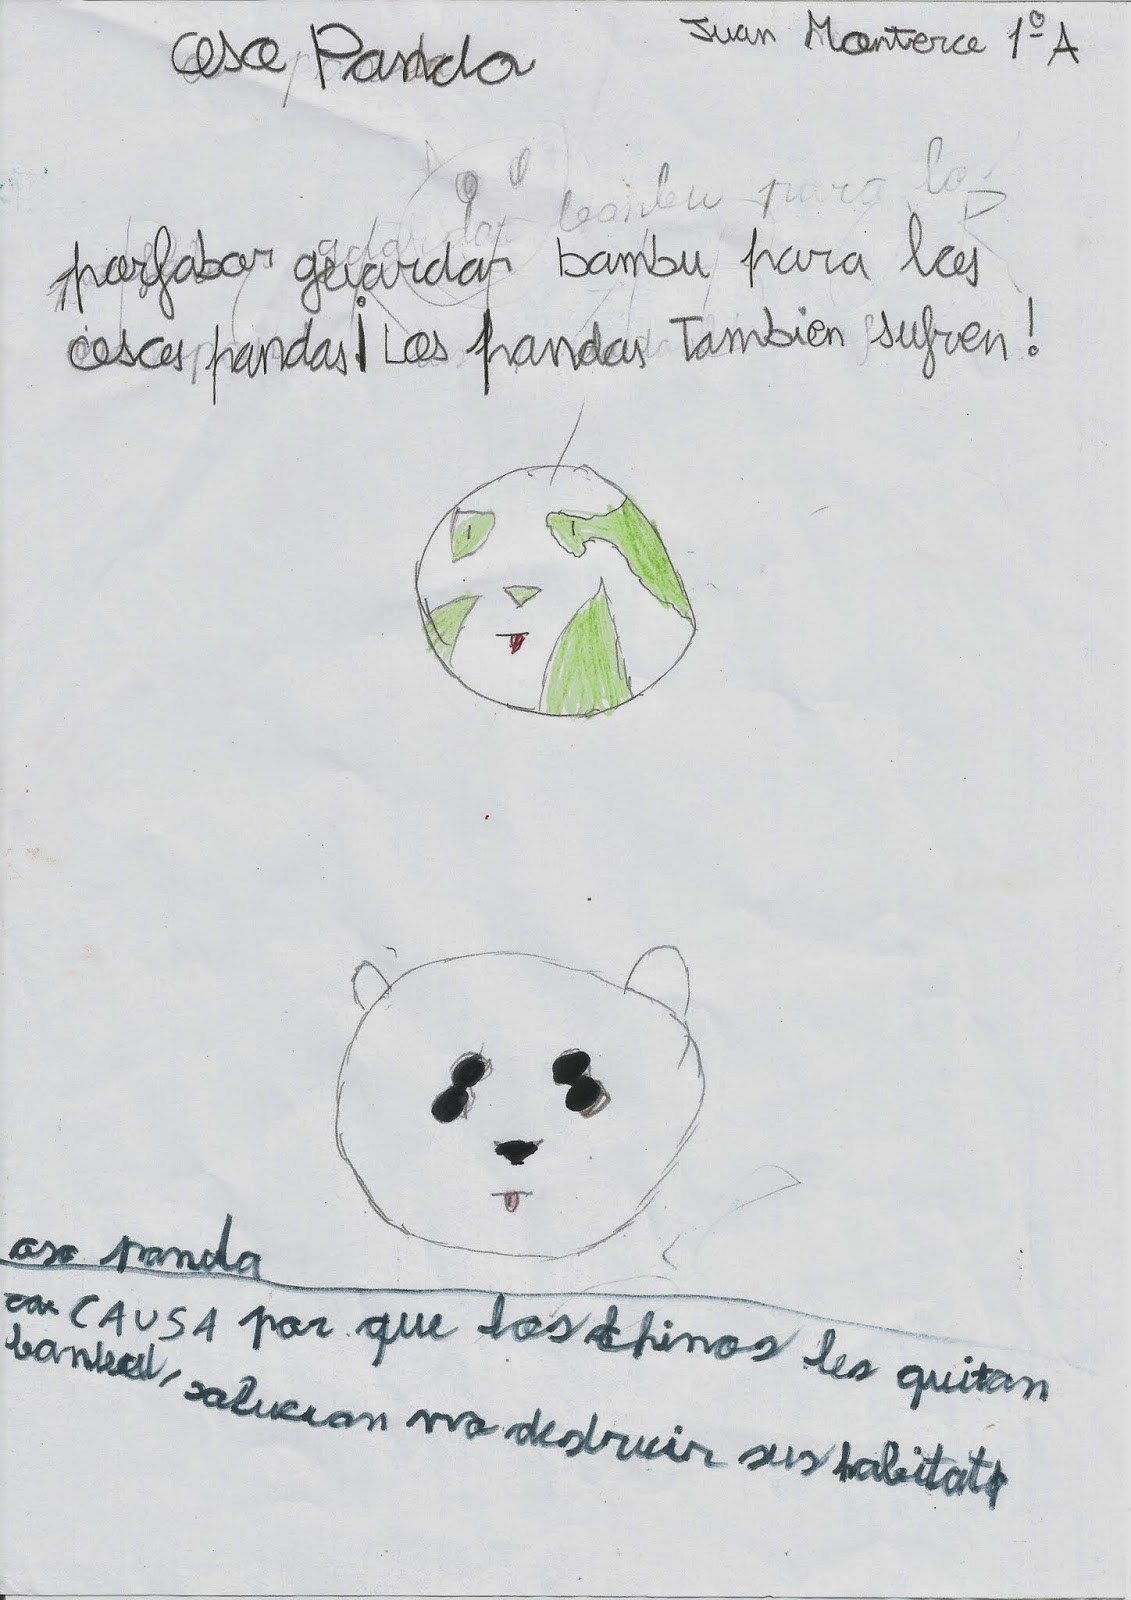 oso Panda
Juan Monterce 1º A
bambu para los
porfabor guardar bambu para los
osos pandas ¡Los pandas Tambien sufren!
oso panda
CAUSA por que los chinos les quitan
solucion no destruir sus habitat